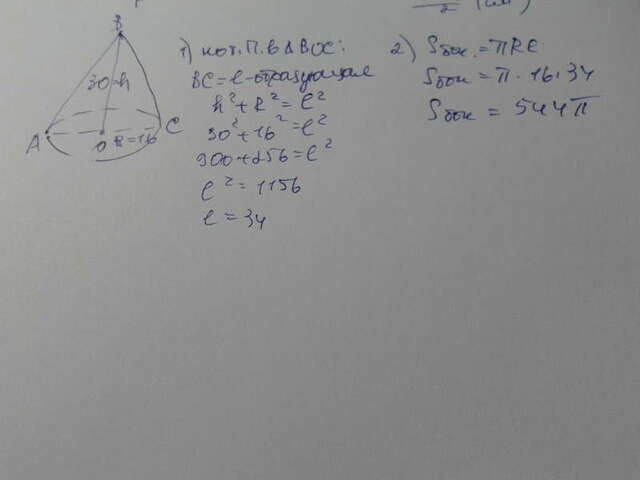 2 (см²)
B
30=h
A
O
R=16
C
1) по т. П. в ΔBOC:
BC=l-образующая
h²+R²=l²
30²+16²=l²
900+256=l²
l²=1156
l=34
2) Sбок.=πRl
Sбок=π·16·34
Sбок=544π